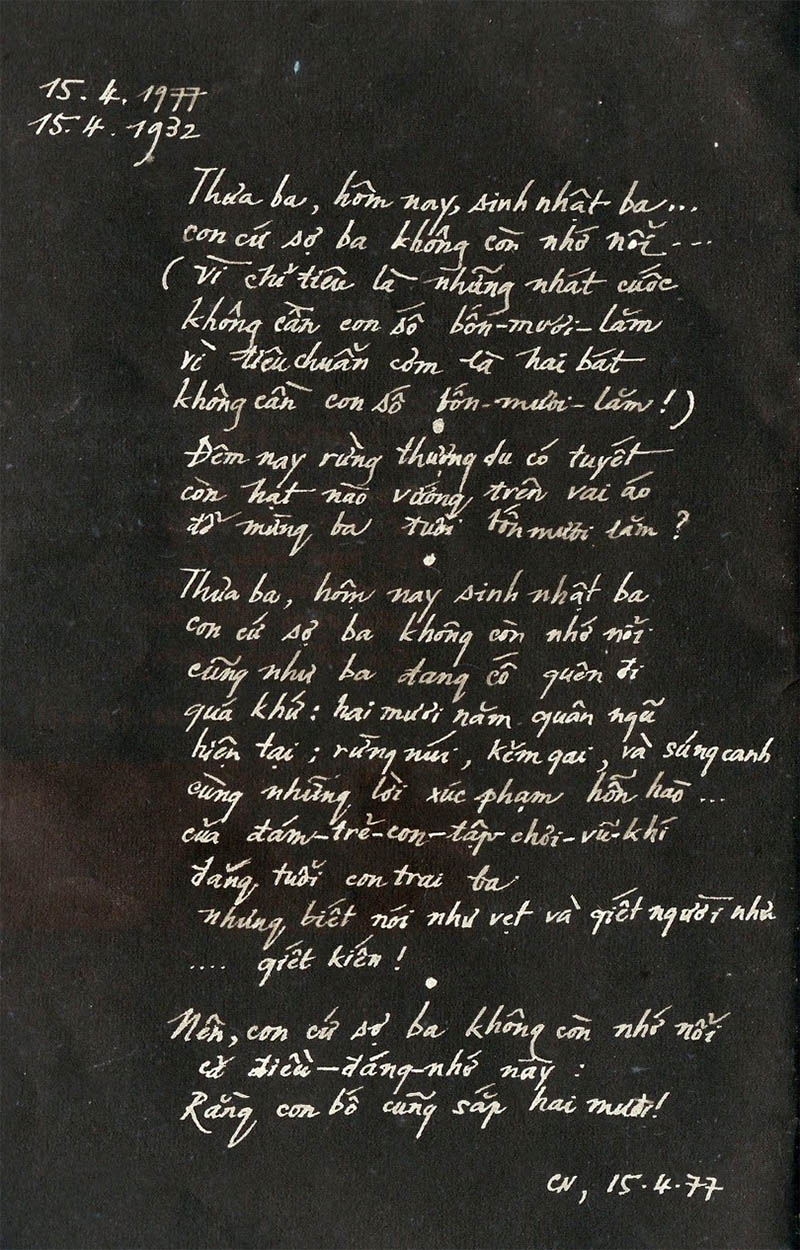 15.4.1977
15.4.1932
Thưa ba, hôm nay, sinh nhật ba...
con cứ sợ ba không còn nhớ nổi...
(vì chỉ tiêu là những nhát cuốc
không cần con số bốn-mươi-lăm
vì tiêu chuẩn cơm là hai bát
không cần con số bốn-mươi-lăm!)
Đêm nay rừng thượng du có tuyết
còn hạt nào vướng trên vai áo
để mừng ba tuổi bốn mươi lăm?
Thưa ba, hôm nay sinh nhật ba
con cứ sợ ba không còn nhớ nổi
cũng như ba đang cố quên đi
quá khứ: hai mươi năm quân ngũ
hiện tại; rừng núi, kẽm gai, và súng canh
cùng những lời xúc phạm hỗn hào...
của đám-trẻ-con-tập chơi-vũ-khí
đáng tuổi con trai ba
nhưng biết nói như vẹt và giết người như
.... giết kiến!
Nên, con cứ sợ ba không còn nhớ nổi
cả điều-đáng-nhớ này:
Rằng con bố cũng sắp hai mươi!
CN, 15.4.77